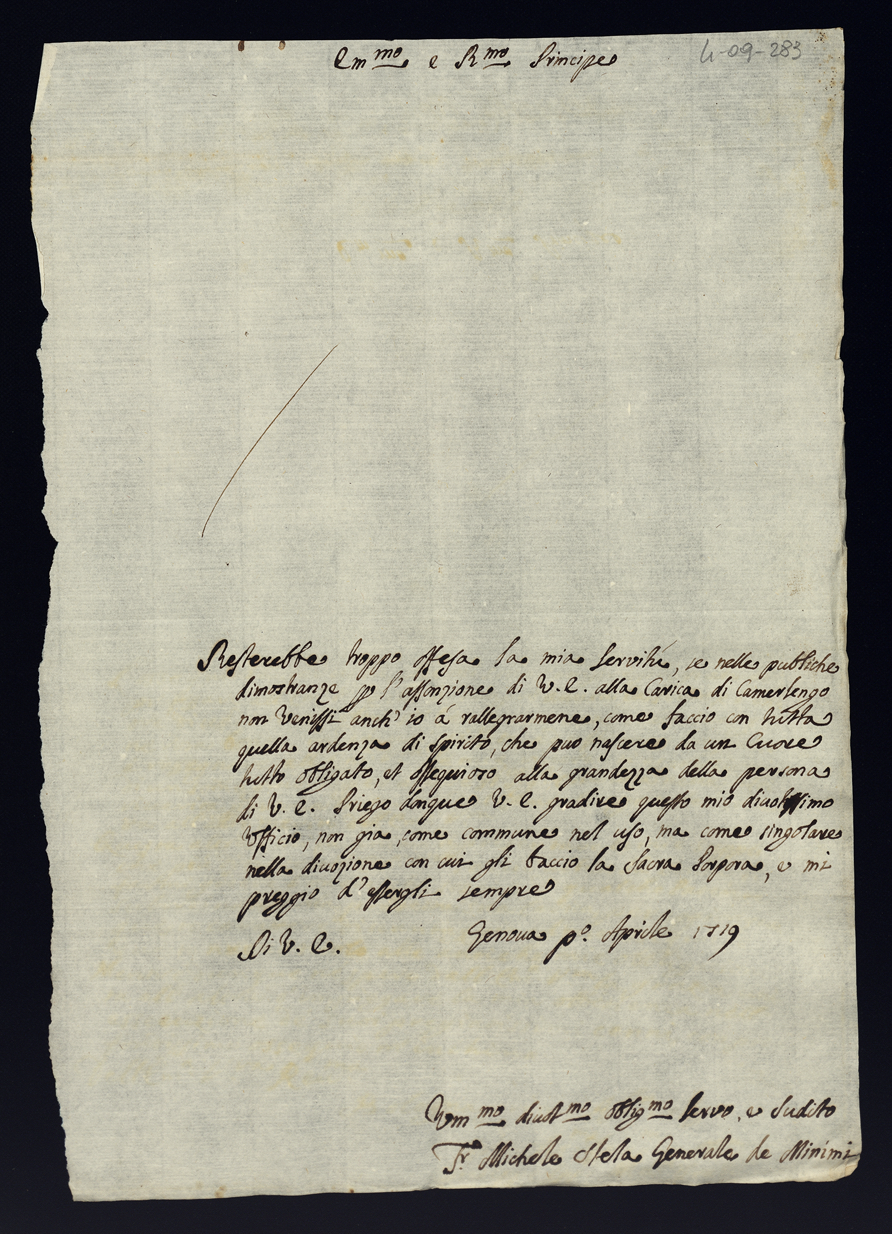 Em.mo e R.mo Principe
4-09-283
Resterebbe troppo offesa la mia servitù, se nelle publiche
dimostranze p l'assonzione di V. E. alla Carica di Camerlengo
non venissi anch'io à rallegrarmene, come faccio con tutta
quella ardenza di spirito, che può nascere da un Cuore
tutto obligato, et ossequioso alla grandezza della persona
di V. E. Priego donque V. E. gradire questo mio divotissimo
Ufficio, non gia come commune nel uso, ma come singolare
nella divozione con cui gli baccio la Sacra Porpora, e mi
preggio d'essergli sempre
Di V. E. Genova p.o Aprile 1719
Um.mo divot.mo oblig.mo servo, e sudito
Fr. Michele Stela Generale de Minimi